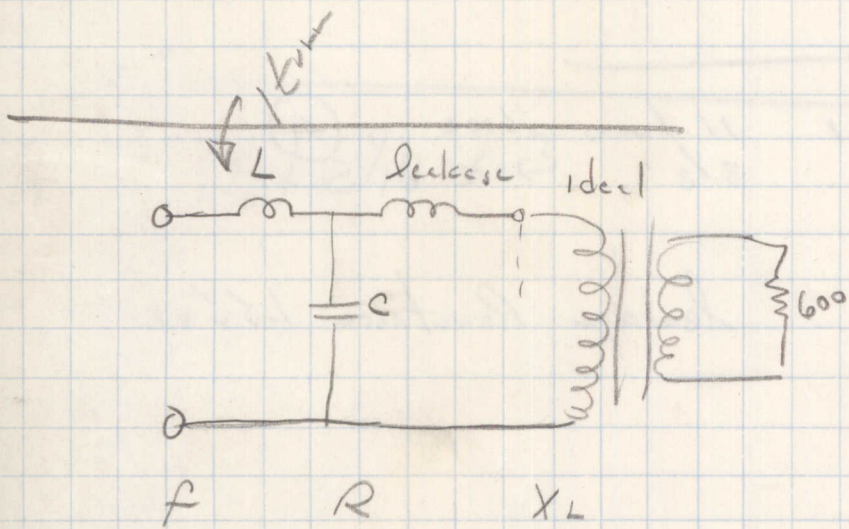 L leakage ideal
C
600
f R XL